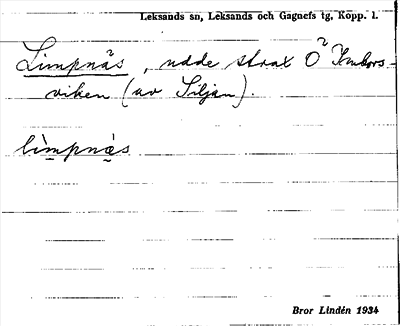 Leksands sn, Leksands och Gagnefs tg, Kopp. l.
Limpnäs, udde strax Ö
viken (av Siljan).
lìmpnä̀s
Bror Lindén 1934